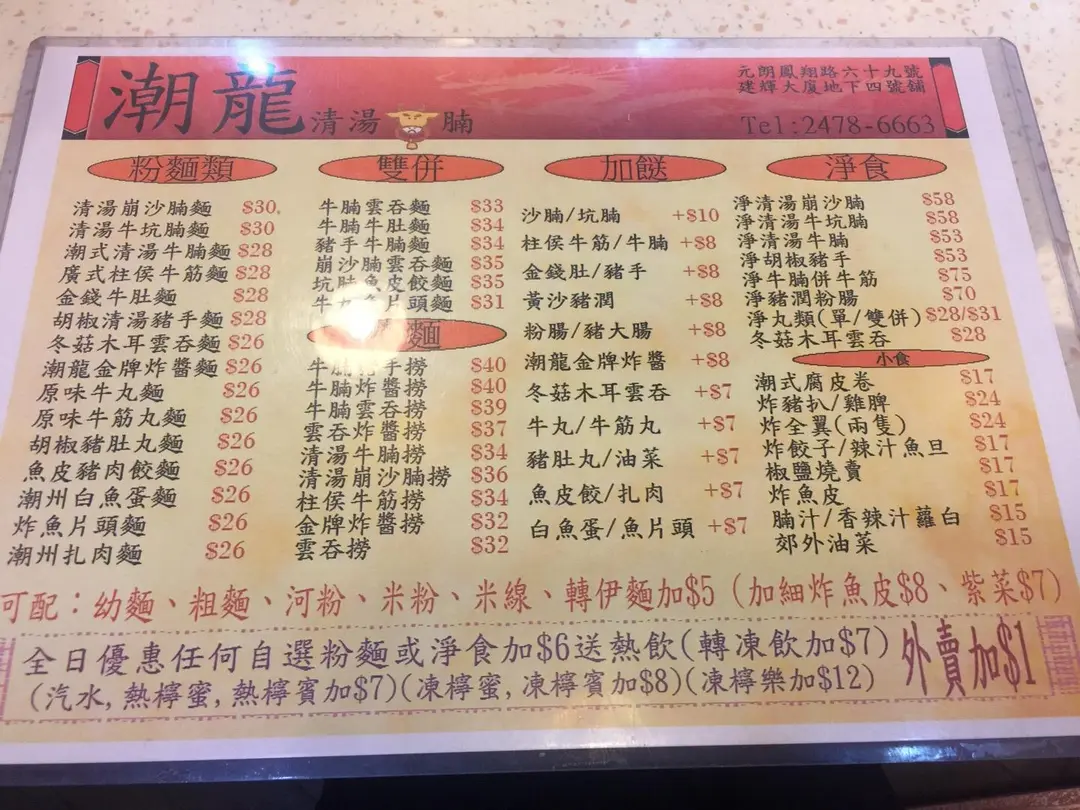 潮龍清湯腩
元朗鳳翔路六十九號
建輝大廈地下四號舖
Tel:2478-6663
粉麵類
清湯崩沙腩麵 $30
清湯牛坑腩麵 $30
潮式清湯牛腩麵 $28
廣式柱侯牛筋麵 $28
金錢牛肚麵 $28
胡椒清湯豬手麵 $28
冬菇木耳雲吞麵 $26
潮龍金牌炸醬麵 $26
原味牛丸麵 $26
原味牛筋丸麵 $26
胡椒豬肚丸麵 $26
魚皮豬肉餃麵 $26
潮州白魚蛋麵 $26
炸魚片頭麵 $26
潮州扎肉麵 $26
雙併
牛腩雲吞麵 $33
牛腩牛肚麵 $34
豬手牛腩麵 $34
崩沙腩雲吞麵 $35
坑腩魚皮餃麵 $35
牛丸魚片頭麵 $31
麵
牛腩手撈 $40
牛腩炸醬撈 $40
牛腩雲吞撈 $39
雲吞炸醬撈 $37
清湯牛腩撈 $34
清湯崩沙腩撈 $36
柱侯牛筋撈 $34
金牌炸醬撈 $32
雲吞撈 $32
加餸
沙腩/坑腩 +$10
柱侯牛筋/牛腩 +$8
金錢肚/豬手 +$8
黃沙豬潤 +$8
粉腸/豬大腸 +$8
潮龍金牌炸醬 +$8
冬菇木耳雲吞 +$7
牛丸/牛筋丸 +$7
豬肚丸/油菜 +$7
魚皮餃/扎肉 +$7
白魚蛋/魚片頭 +$7
淨食
淨清湯崩沙腩 $58
淨清湯牛坑腩 $58
淨清湯牛腩 $53
淨胡椒豬手 $53
淨牛腩併牛筋 $75
淨豬潤粉腸 $70
淨丸類(單/雙併) $28/$31
冬菇木耳雲吞 $28
小食
潮式腐皮卷 $17
炸豬扒/雞脾 $24
炸全翼(兩隻) $24
炸餃子/辣汁魚旦 $17
椒鹽燒賣 $17
炸魚皮 $17
腩汁/香辣汁蘿白 $15
郊外油菜 $15
可配：幼麵、粗麵、河粉、米粉、米線、轉伊麵加$5（加細炸魚皮$8、紫菜$7）
全日優惠任何自選粉麵或淨食加$6送熱飲(轉凍飲加$7)
(汽水,熱檸蜜,熱檸賓加$7)(凍檸蜜,凍檸賓加$8)(凍檸樂加$12)
外賣加$1